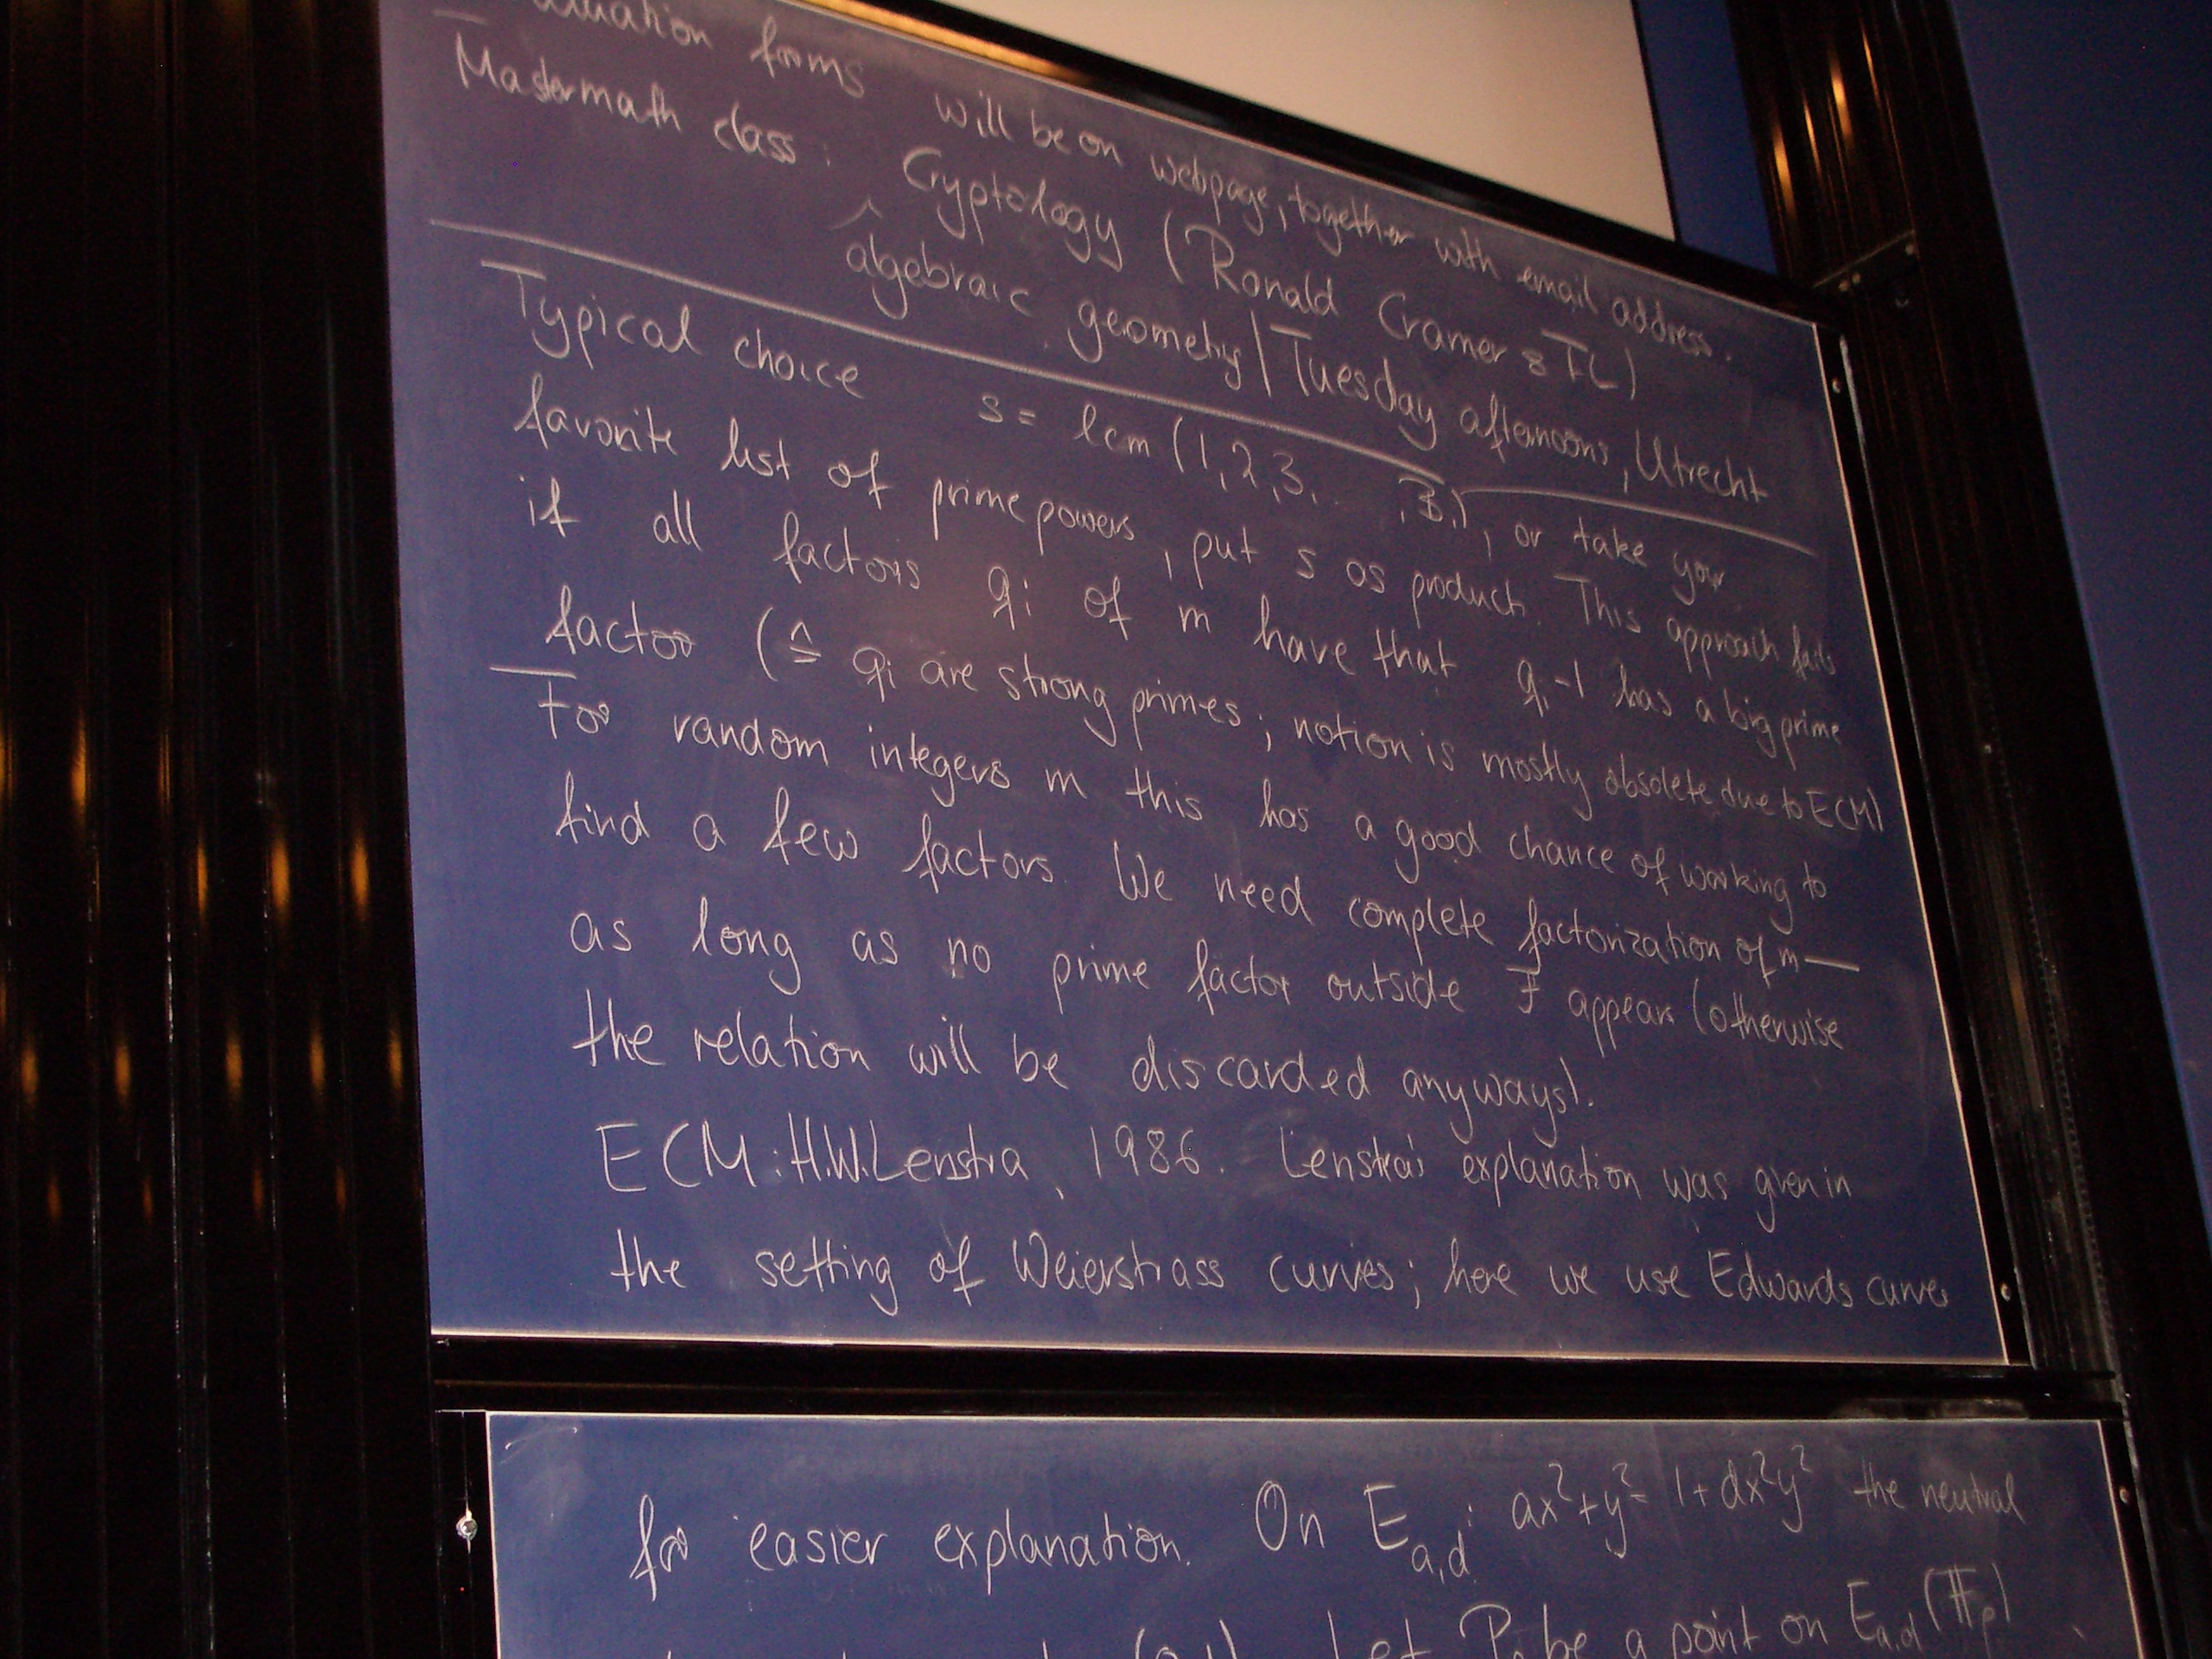 forms will be on webpage, together with email address.
Mastermath class: Cryptology (Ronald Cramer & TL)
^ algebraic geometry | Tuesday afternoons, Utrecht
Typical choice s = lcm (1,2,3, . . ,B₁), or take your
favorite list of prime powers, put s as product. This approach fails
if all factors qᵢ of m have that qᵢ-1 has a big prime
factor (≙ qᵢ are strong primes; notion is mostly obsolete due to ECM)
For random integers m this has a good chance of working to
find a few factors. We need complete factorization of m —
as long as no prime factor outside F appears (otherwise
the relation will be discarded anyways).
ECM: H.W. Lenstra, 1986. Lenstra's explanation was given in
the setting of Weierstrass curves; here we use Edwards curves
for easier explanation. On E_{a,d}: ax²+y²= 1+dx²y² the neutral
Let P be a point on E_{a,d}(𝔽_p)